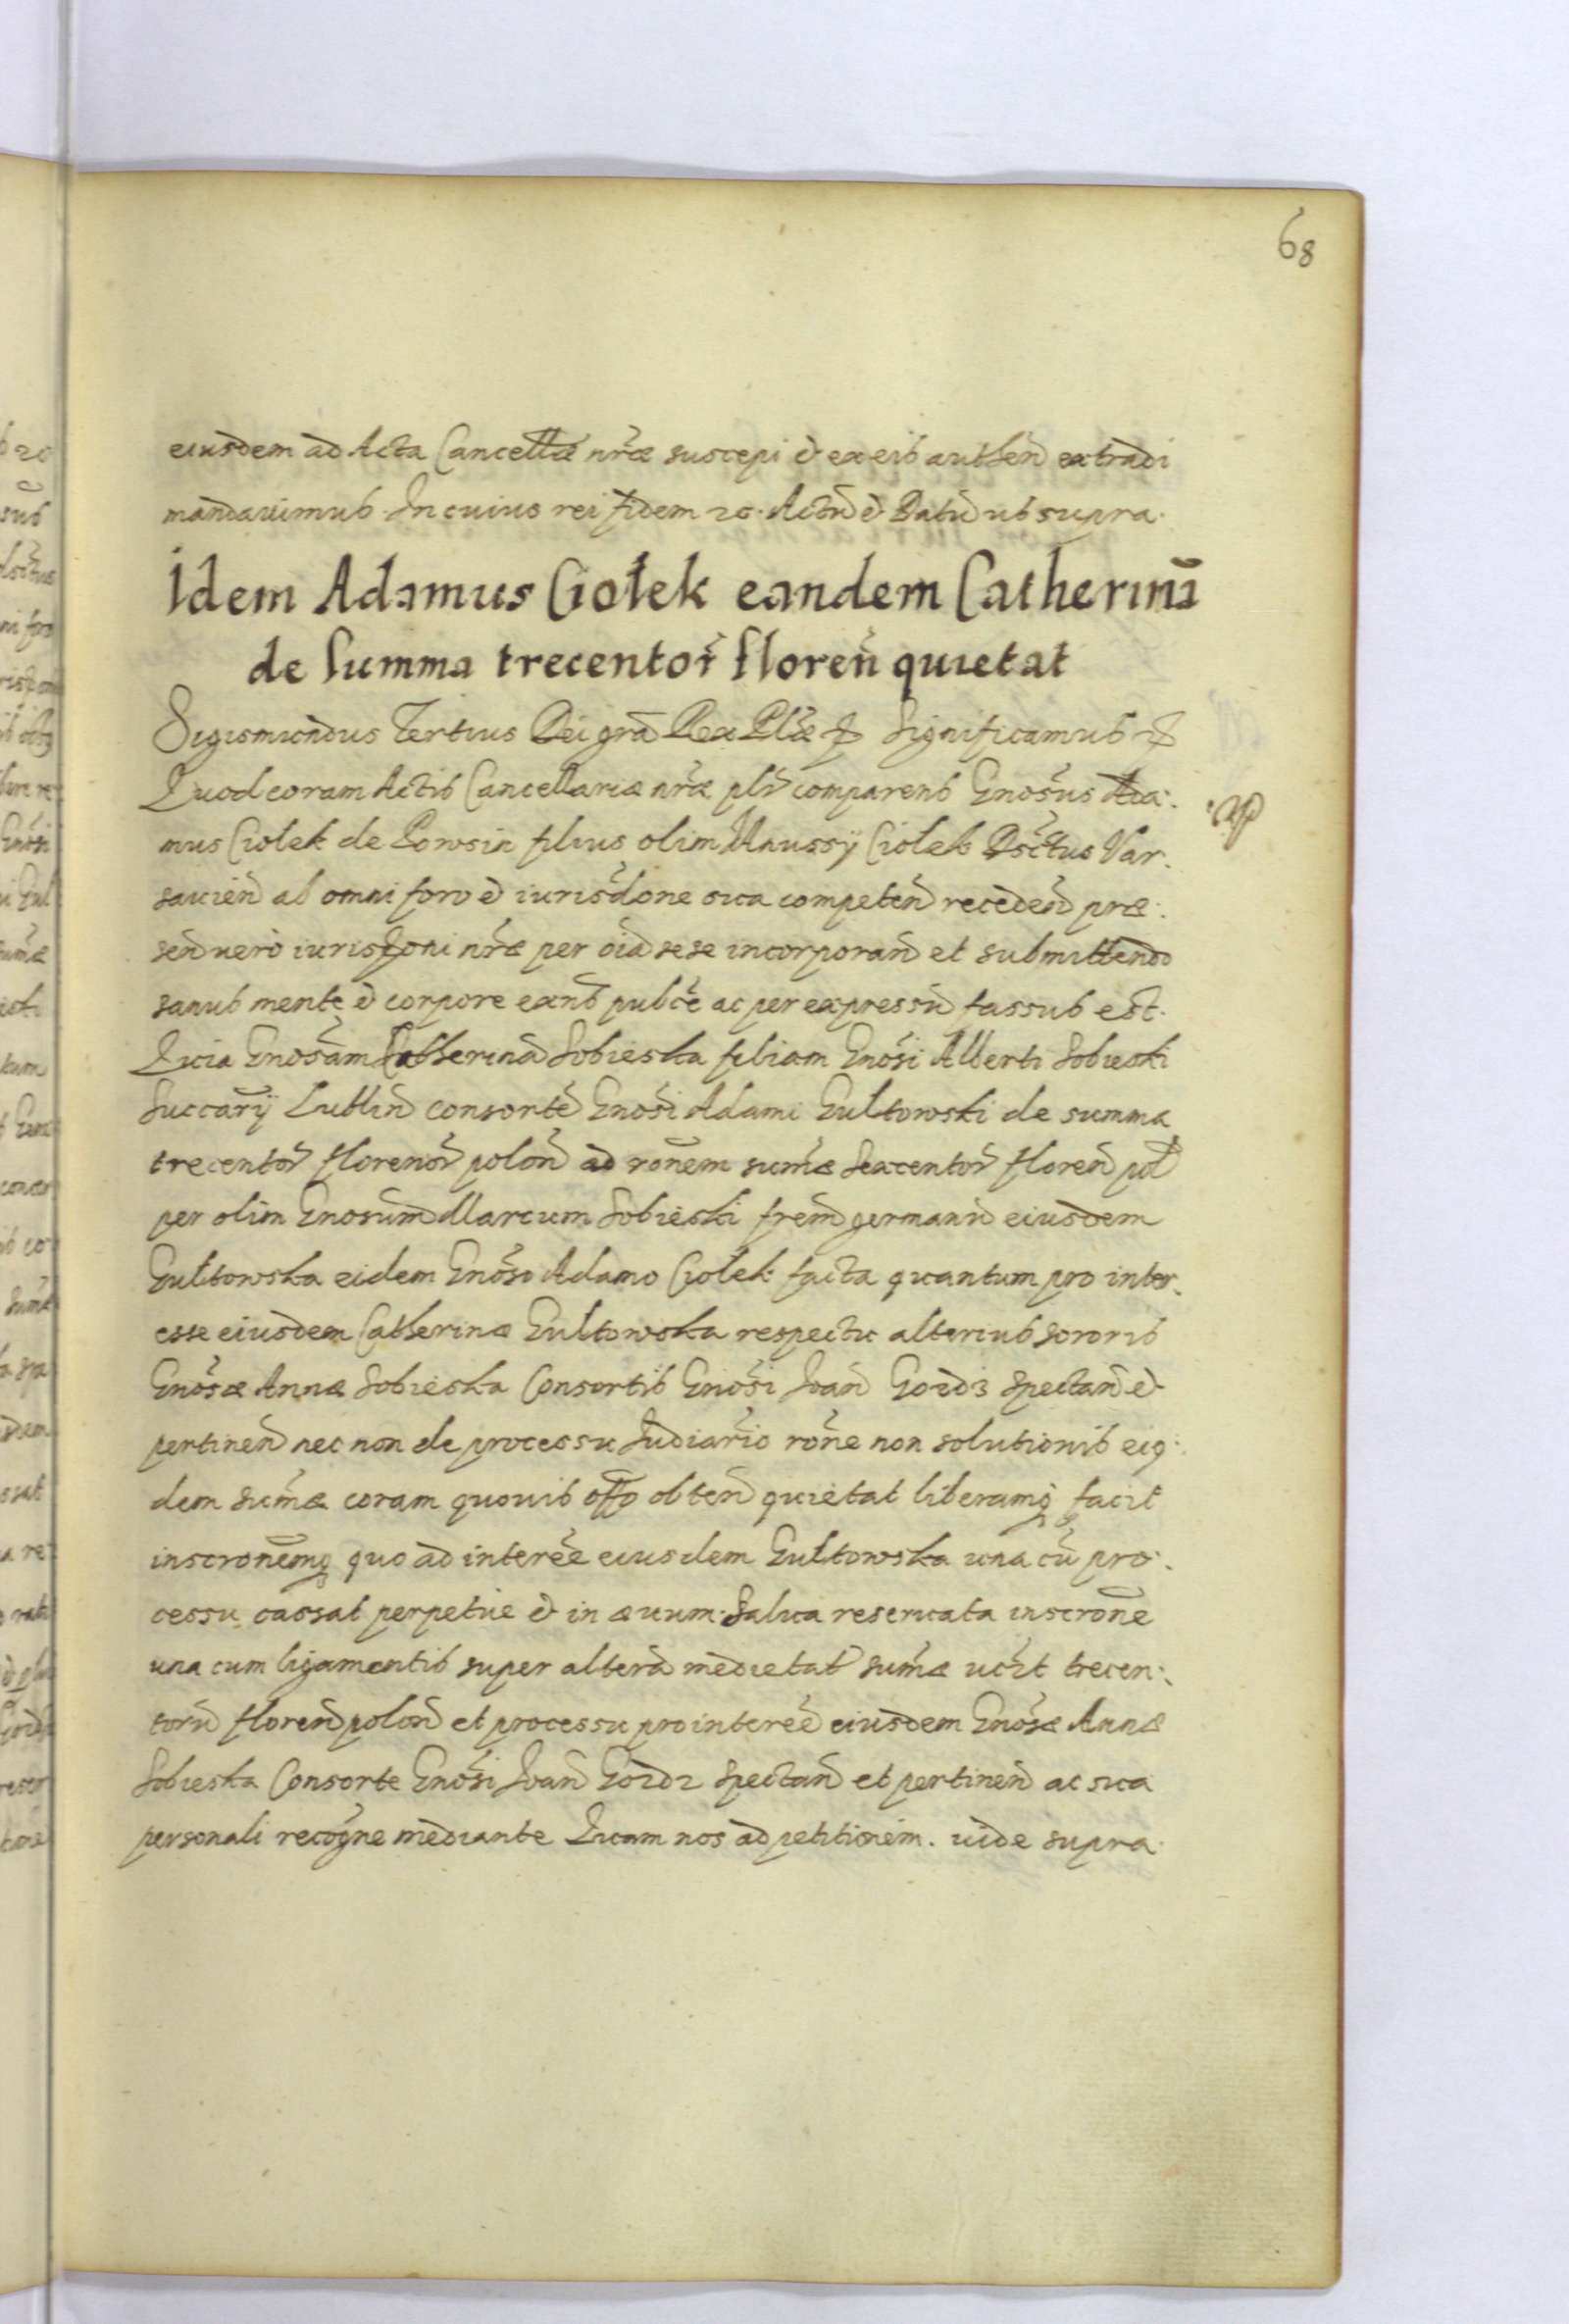 68
eiusdem ad Acta Cancellae nrae suscepi et ex eis authen extradi
mandavimus. In cuius rei fidem etc. Actum et Datum ut supra.
Idem Adamus Ciołek eandem Catherinā
de summa trecentor̃ floreñ quietat
Sigismundus Tertius Dei grã Rex Plae etc Significamus etc
Quod coram Actis Cancellariae nrae plr comparens Gnosus Ada:
mus Ciołek de Powsin filius olim Ciołek Dsctus Var.
savien ab omni foro et iurisdone sua competen receden prae:
sen vero iurisdoni nrae per oia sese incorporan et submittendo
sanus mente et corpore exns pubce ac per expressum fassus est.
Quia Gnosam Catherinam Sobieska filiam Gnosi Alberti Sobieski
Succarij Lublin consorte Gnosi Adami Gultowski de summa
trecentor florenor polon ad ronem sumae sexcentor floren pol
per olim Gnosum Marcum Sobieski frem germanu eiusdem
Gultowska eidem Gnoso Adamo Ciołek facta quantum pro inter.
esse eiusdem Catherinae Gultowska respectu alterius sororis
Gnosae Annae Sobieska Consortis Gnosi Joan spectan et
pertinen nec non de processu Judiario rone non solutionis eiq:
dem sumae coram quovis offo obten quietat liberumq facit
inscronemq quo ad interee eiusdem Gultowska una cu pro:
cessu cassat perpetue et in aevum. Salva reservata inscrone
una cum ligamentis super altera medietat sumae vczt trecen:
toru floren polon et processu pro interee eiusdem Gnosae Annae
Sobieska Consorte Gnosi Joan spectan et pertinen ac sua
personali recogne mediante Quam nos ad petitionem. vide supra.